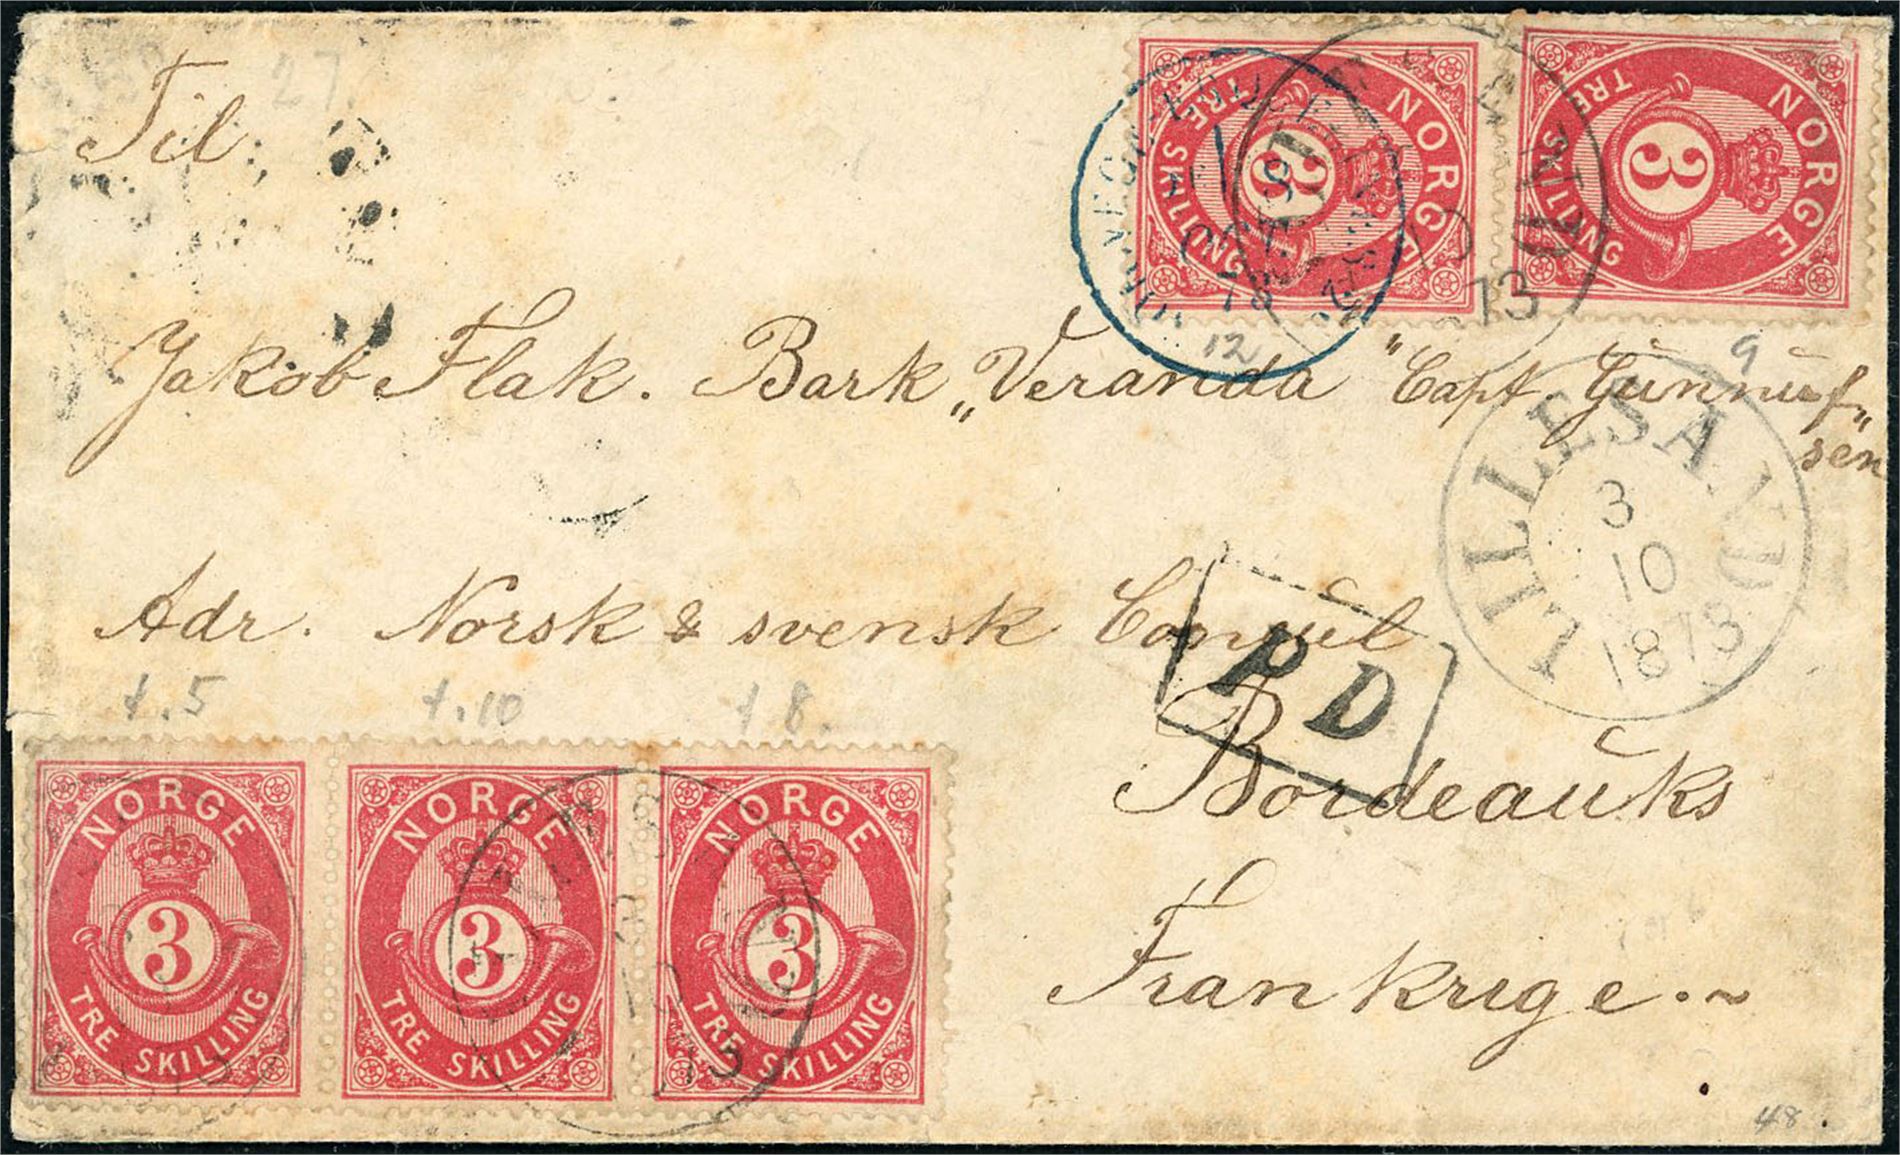 27.
Til
NORGE
3
TRE SKILLING
NORGE
3
TRE SKILLING
12
9
Jakob Flak. Bark „Veranda" Capt. Gunnuf„
sen
LILLESAND
3
10
1873
Adr. Norsk & svensk Consul
PD
Bordeauks
Frankrige.~
t.5
t.10
t 8.
NORGE
3
TRE SKILLING
NORGE
3
TRE SKILLING
NORGE
3
TRE SKILLING
48.